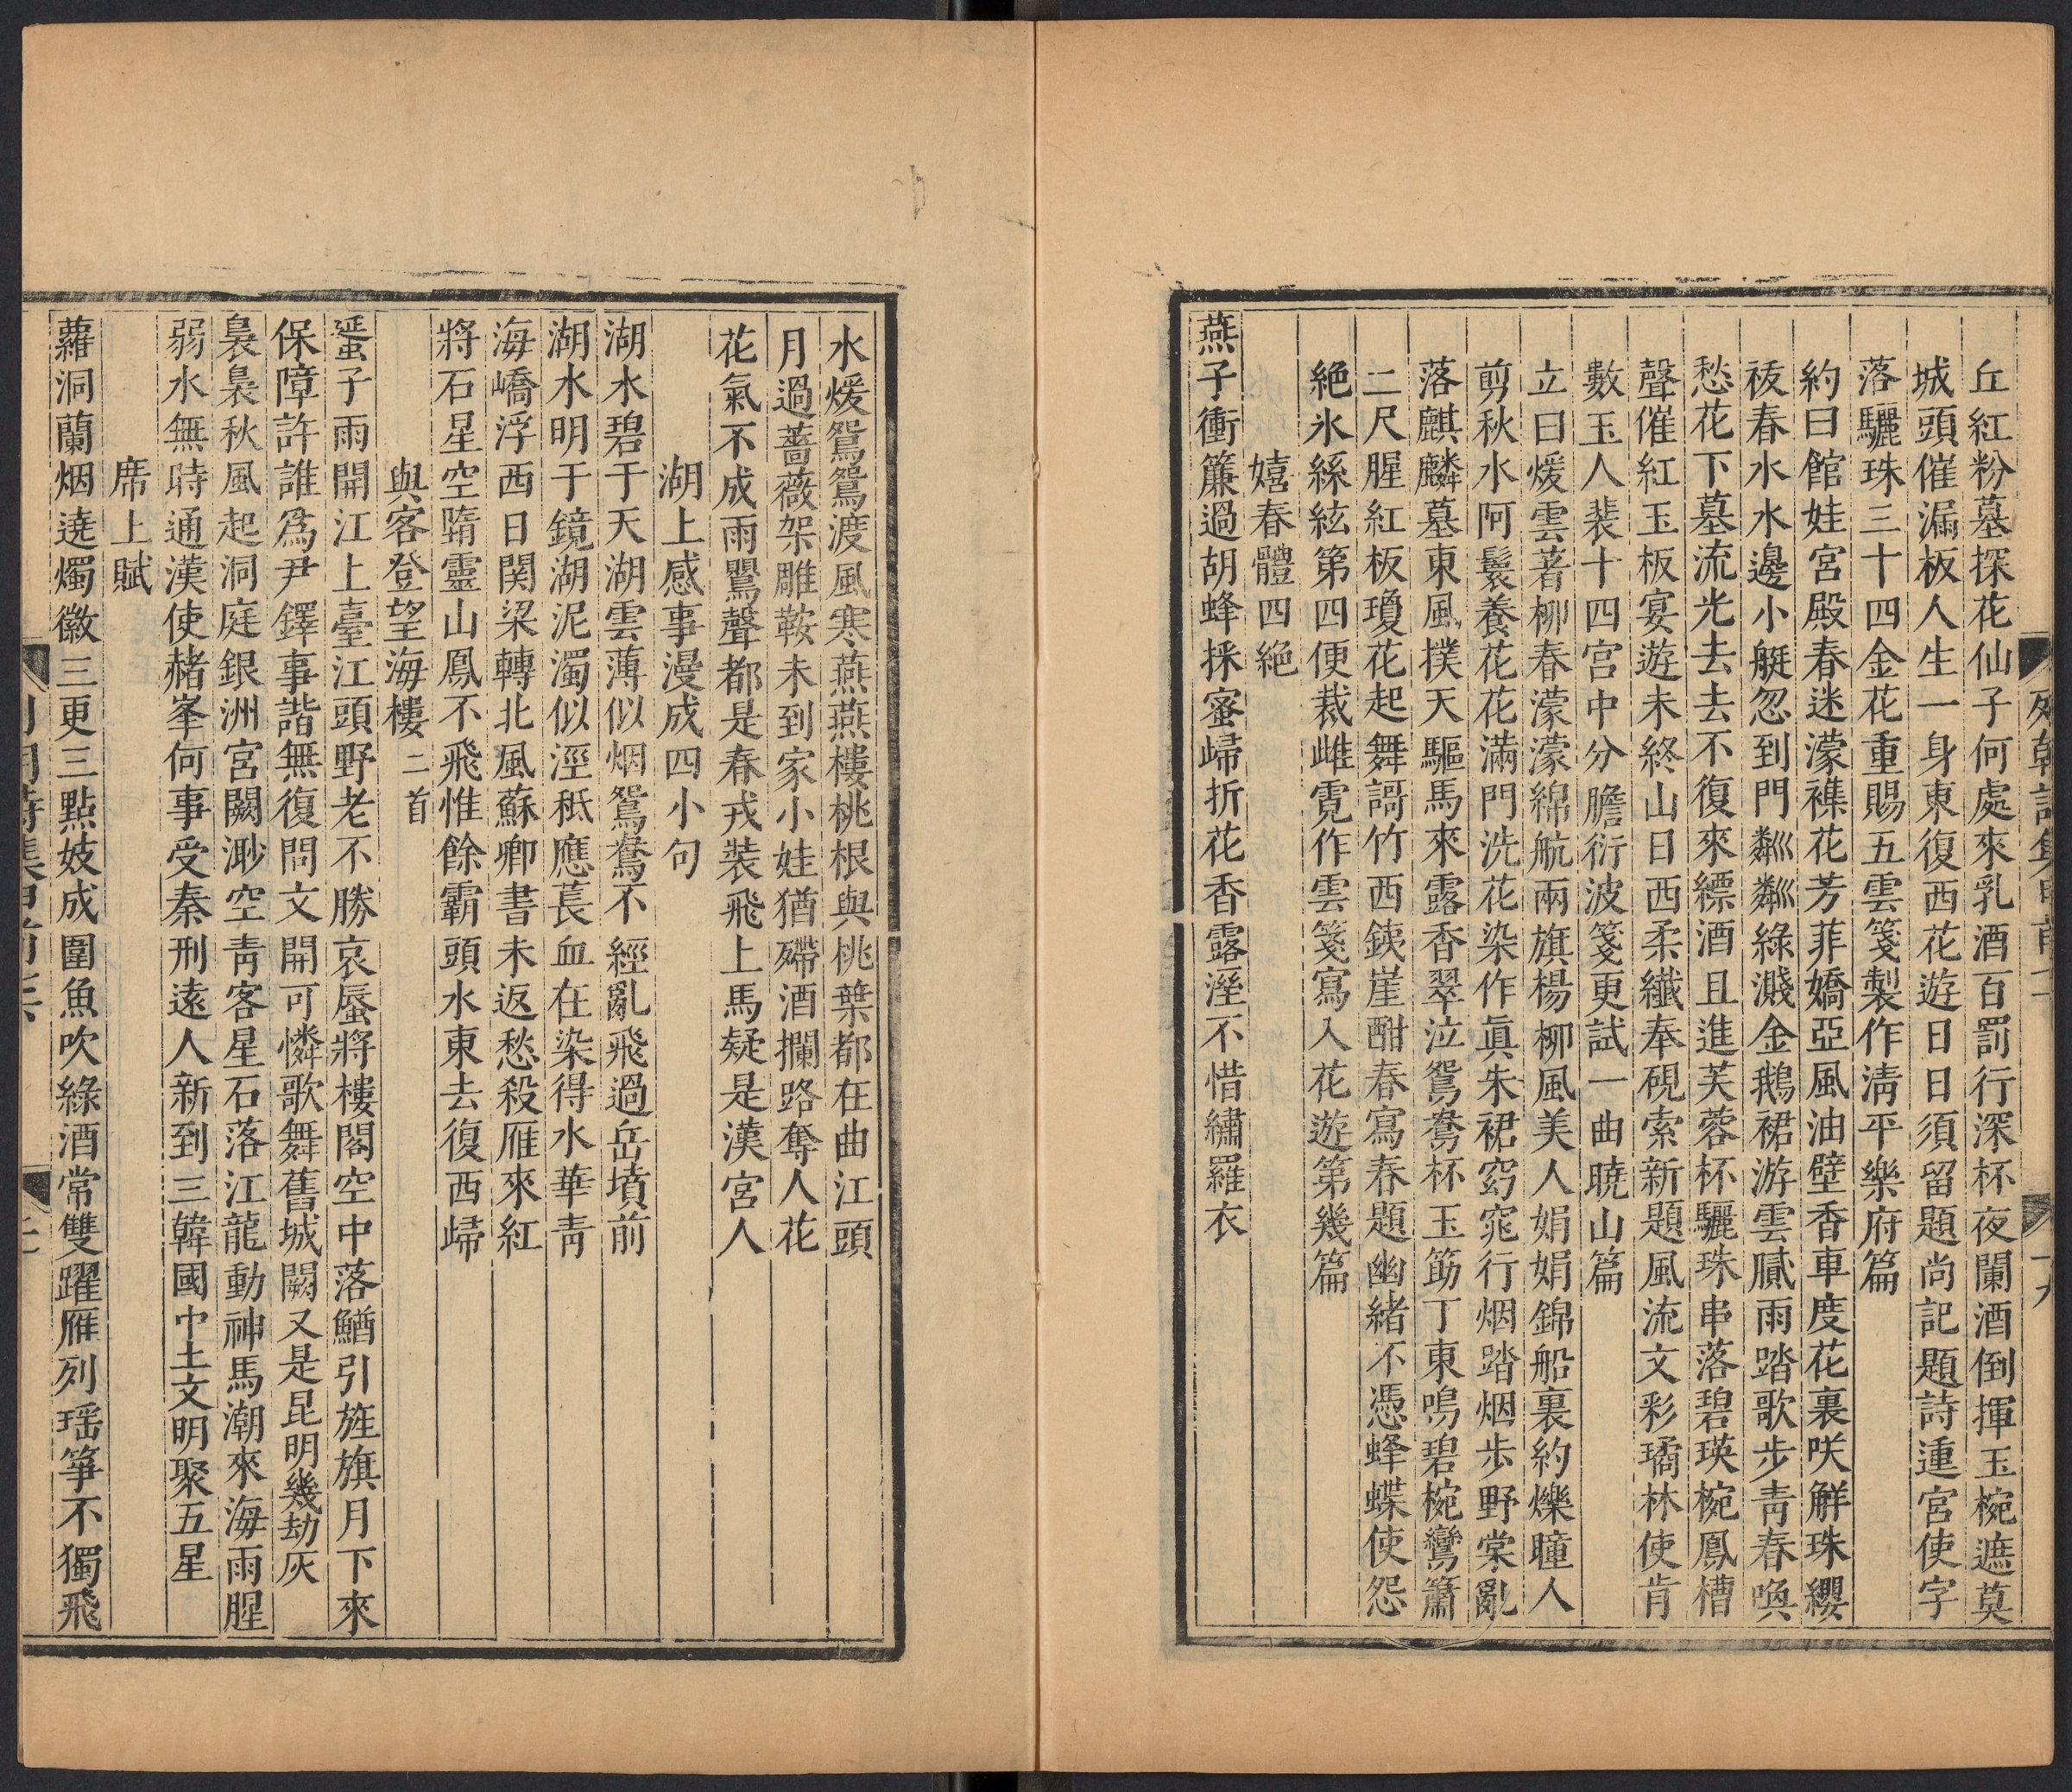 丘紅粉墓探花仙子何處來乳酒百罰行深杯夜闌酒倒揮玉椀遮莫
城頭催漏板人生一身東復西花遊日日須留題尚記題詩連宮使字
落驪珠三十四金花重賜五雲箋製作淸平樂府篇
約曰館娃宮殿春迷濛襍花芳菲嬌亞風油壁香車度花裏咲解珠纓
祓春水水邊小艇忽到門粼粼綠濺金鵝裙游雲膩雨踏歌步青春喚
愁花下墓流光去去不復來縹酒且進芙蓉杯驪珠串落碧瑛椀鳳槽
聲催紅玉板宴遊未終山日西柔纖奉硯索新題風流文彩璚林使肯
數玉人裴十四宮中分膽衍波箋更試一曲曉山篇
立曰煖雲著柳春濛濛綿航兩旗楊柳風美人娟娟錦船裏約爍瞳人
剪秋水阿鬟養花花滿門洗花染作眞朱裙窈窕行烟踏烟歩野棠亂
落麒麟墓東風撲天驅馬來露香翠泣鴛鴦杯玉筯丁東鳴碧椀鸞簫
二尺腥紅板瓊花起舞謌竹西鐵崖酣春寫春題幽緒不憑蜂蝶使怨
絶氷絲絃第四便裁雌霓作雲箋寫入花遊第幾篇
嬉春體四絶
燕子衝簾過胡蜂採蜜歸折花香露溼不惜繡羅衣
水煖鴛鴦渡風寒燕燕樓桃根與桃葉都在曲江頭
月過薔薇架雕鞍未到家小娃猶殢酒攔路奪人花
花氣不成雨鶯聲都是春戎裝飛上馬疑是漢宮人
湖上感事漫成四小句
湖水碧于天湖雲薄似烟鴛鴦不經亂飛過岳墳前
湖水明于鏡湖泥濁似涇秪應萇血在染得水華靑
海嶠浮西日関梁轉北風蘇卿書未返愁殺雁來紅
將石星空隋靈山鳳不飛惟餘霸頭水東去復西歸
與客登望海樓二首
蜑子雨開江上臺江頭野老不勝哀蜃將樓閣空中落鰌引旌旗月下來
保障許誰爲尹鐸事諧無復問文開可憐歌舞舊城闕又是昆明幾劫灰
裊裊秋風起洞庭銀洲宮闕渺空靑客星石落江龍動神馬潮來海雨腥
弱水無時通漢使赭峯何事受秦刑遠人新到三韓國中土文明聚五星
席上賦
蘿洞蘭烟遶燭微三更三點妓成圍魚吹綠酒常雙躍雁列瑶箏不獨飛